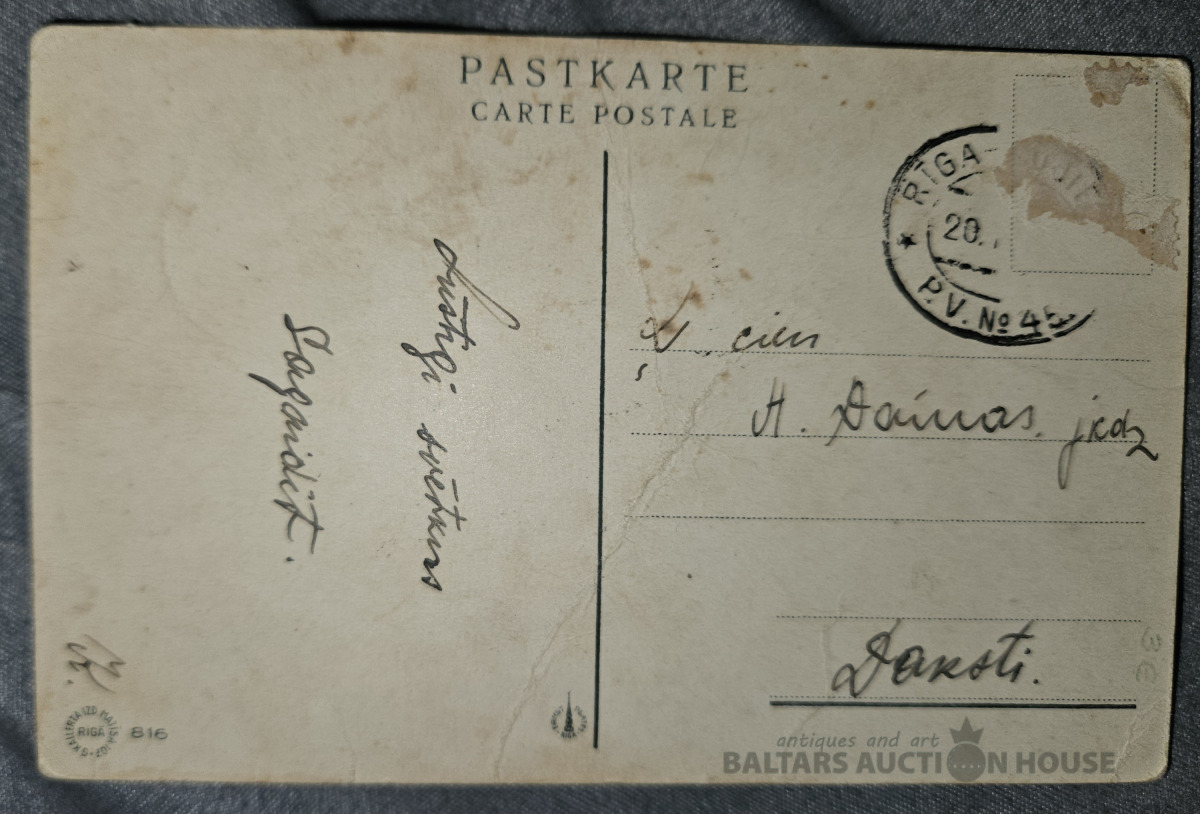 PASTKARTE
CARTE POSTALE
RĪGA
20.
P.V. № 45
Lustīgi svētkus
Sagaidīt.
cien
H. Dainas. jkdz
Daksti.
RIGA
816
3 €
antiques and art
BALTARS AUCTION HOUSE